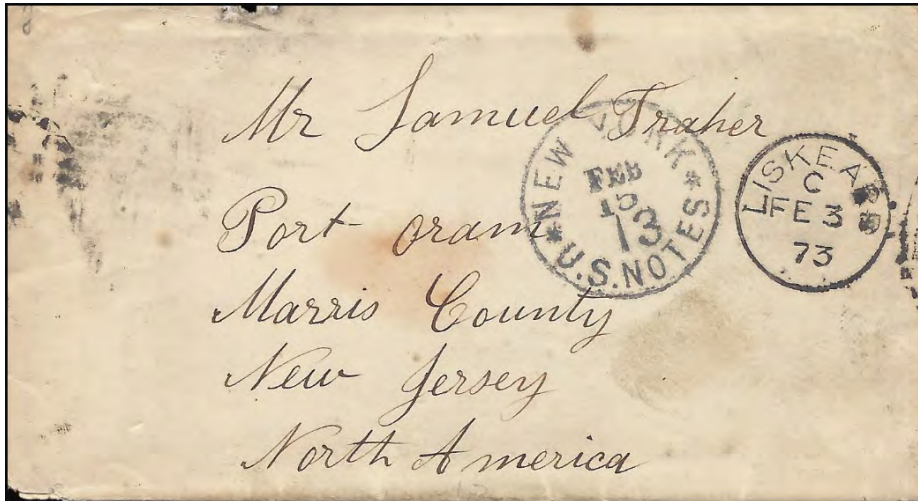 Mr Samuel Traher
Port oram
Marris County
New Jersey
North America
* NEW YORK *
FEB
15
13
U.S. NOTES
LISKEARD
C
FE 3
73